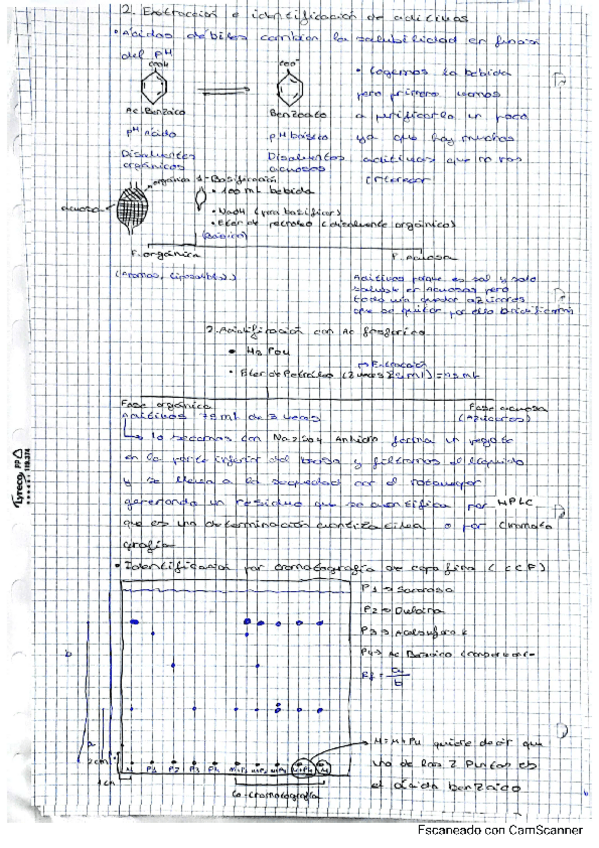 2. Extracción e identificación de aditivos
• Ácidos débiles cambian la solubilidad en función
del pH
COOH
COO⁻
• Cogemos la bebida
pero primero vamos
Ac. Benzoico
Benzoato
a purificarla un poco
pH ácido
pH básico
ya que hay muchos
Disolventes
orgánicos
Disolventes
acuosos
aditivos que no nos
interesan
orgánica
1. Basificación
acuosa
• 100 ml bebida
• NaOH (para basificar)
• Eter de petroleo (disolvente orgánico)
(Básico)
F. orgánica
F. Acuosa
(Aromas, liposolubles)
Aditivos porque es sal y solo
soluble en acuosas pero
todavía quedan azúcares
que se quitan por ello
2. Acidificación con Ac fosforico.
• H3PO4
→ Extracción
• Eter de Petróleo (3 veces) = 75 ml
Fase orgánica
Fase acuosa
Aditivos 75 ml de 3 veces
(Azúcares)
lo secamos con Na2SO4 Anhidro forma un pegote
en la parte inferior del y filtramos el líquido
y se lleva a la sequedad por el rotavapor
generando un residuo que se cuantifica por HPLC
que es una determinación cuantitativa o por cromato
grafía
• Identificación por cromatografía de capa fina (CCF)
P1 → Sacarosa
P2 → Dulcina
P3 → Acesulfamo K
P4 → Ac Benzoico
Rf = a/b
b
a
2cm
1cm
M
P1
P2
P3
P4
M+P1
M+P2
M+P3
M+P4
M
Co-cromatografía
→ M = M+P4 quiere decir que
uno de los 2 Puntos es
el ácido benzoico
Escaneado con CamScanner